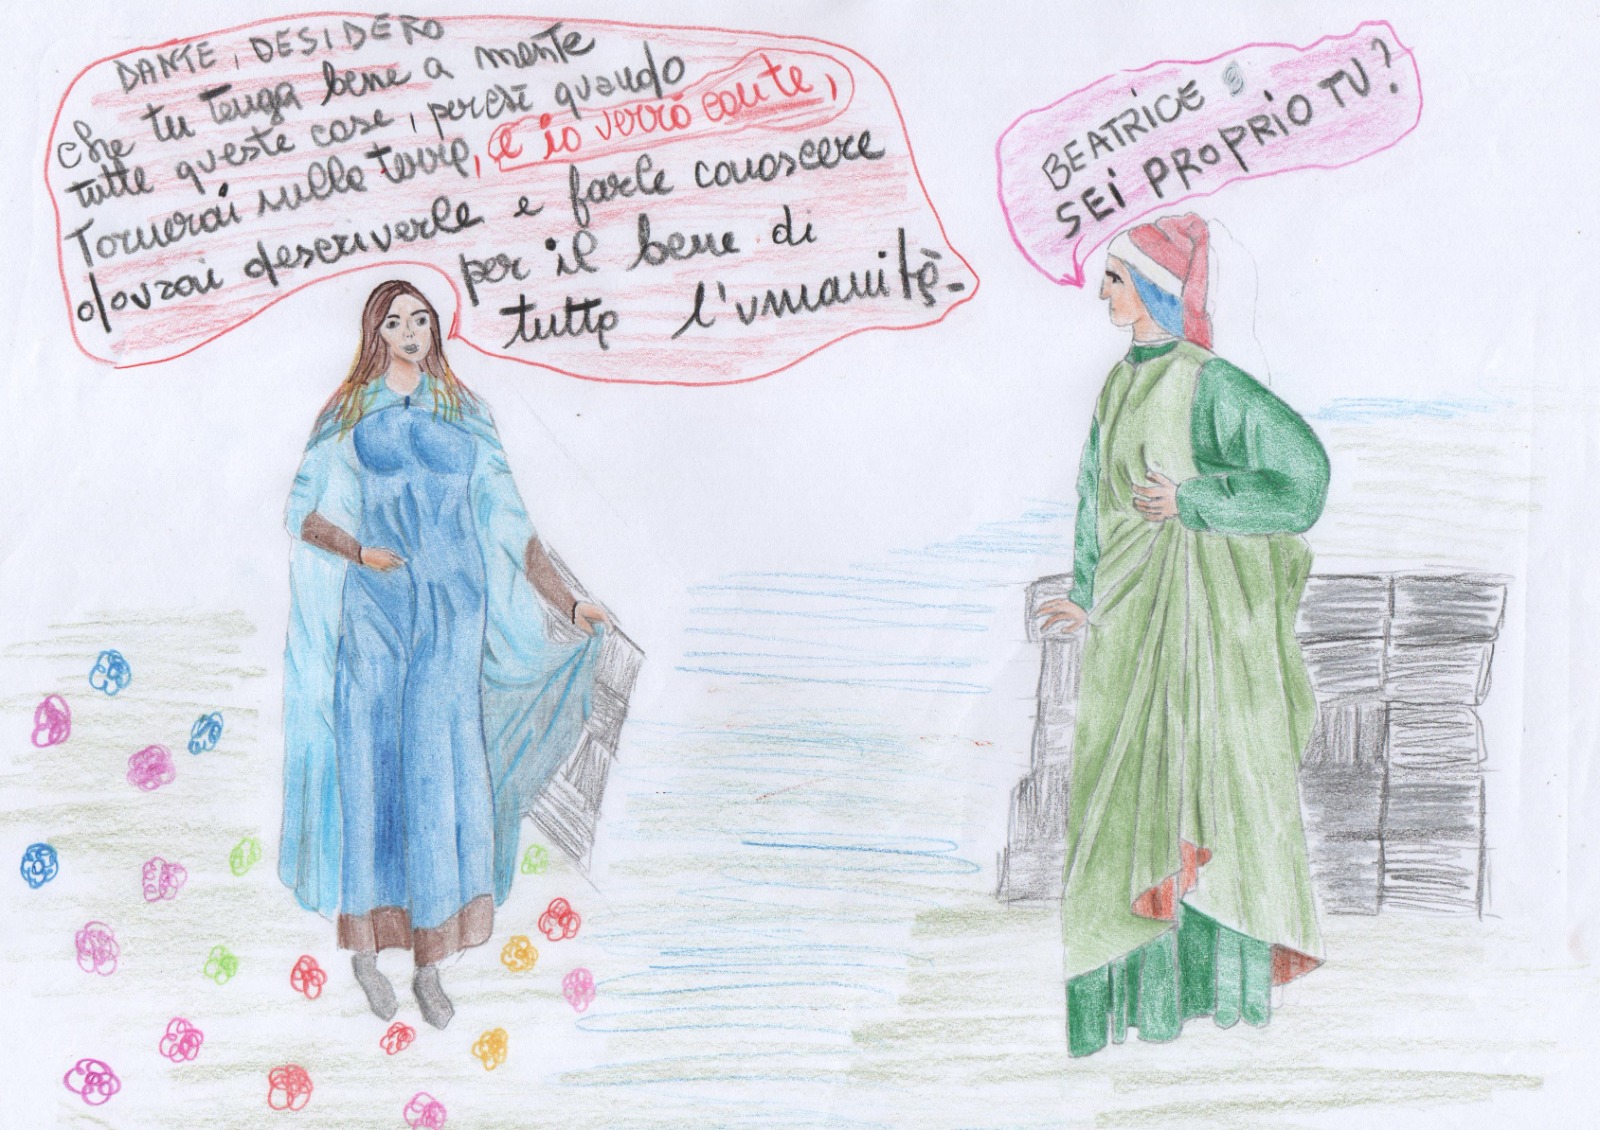 DANTE, DESIDERO
che tu tenga bene a mente
tutte queste cose, perché quando
Tornerai sulla terra, e io verrò con te,
dovrai descriverle e farle conoscere
per il bene di
tutta l'umanità.
BEATRICE
SEI PROPRIO TU?